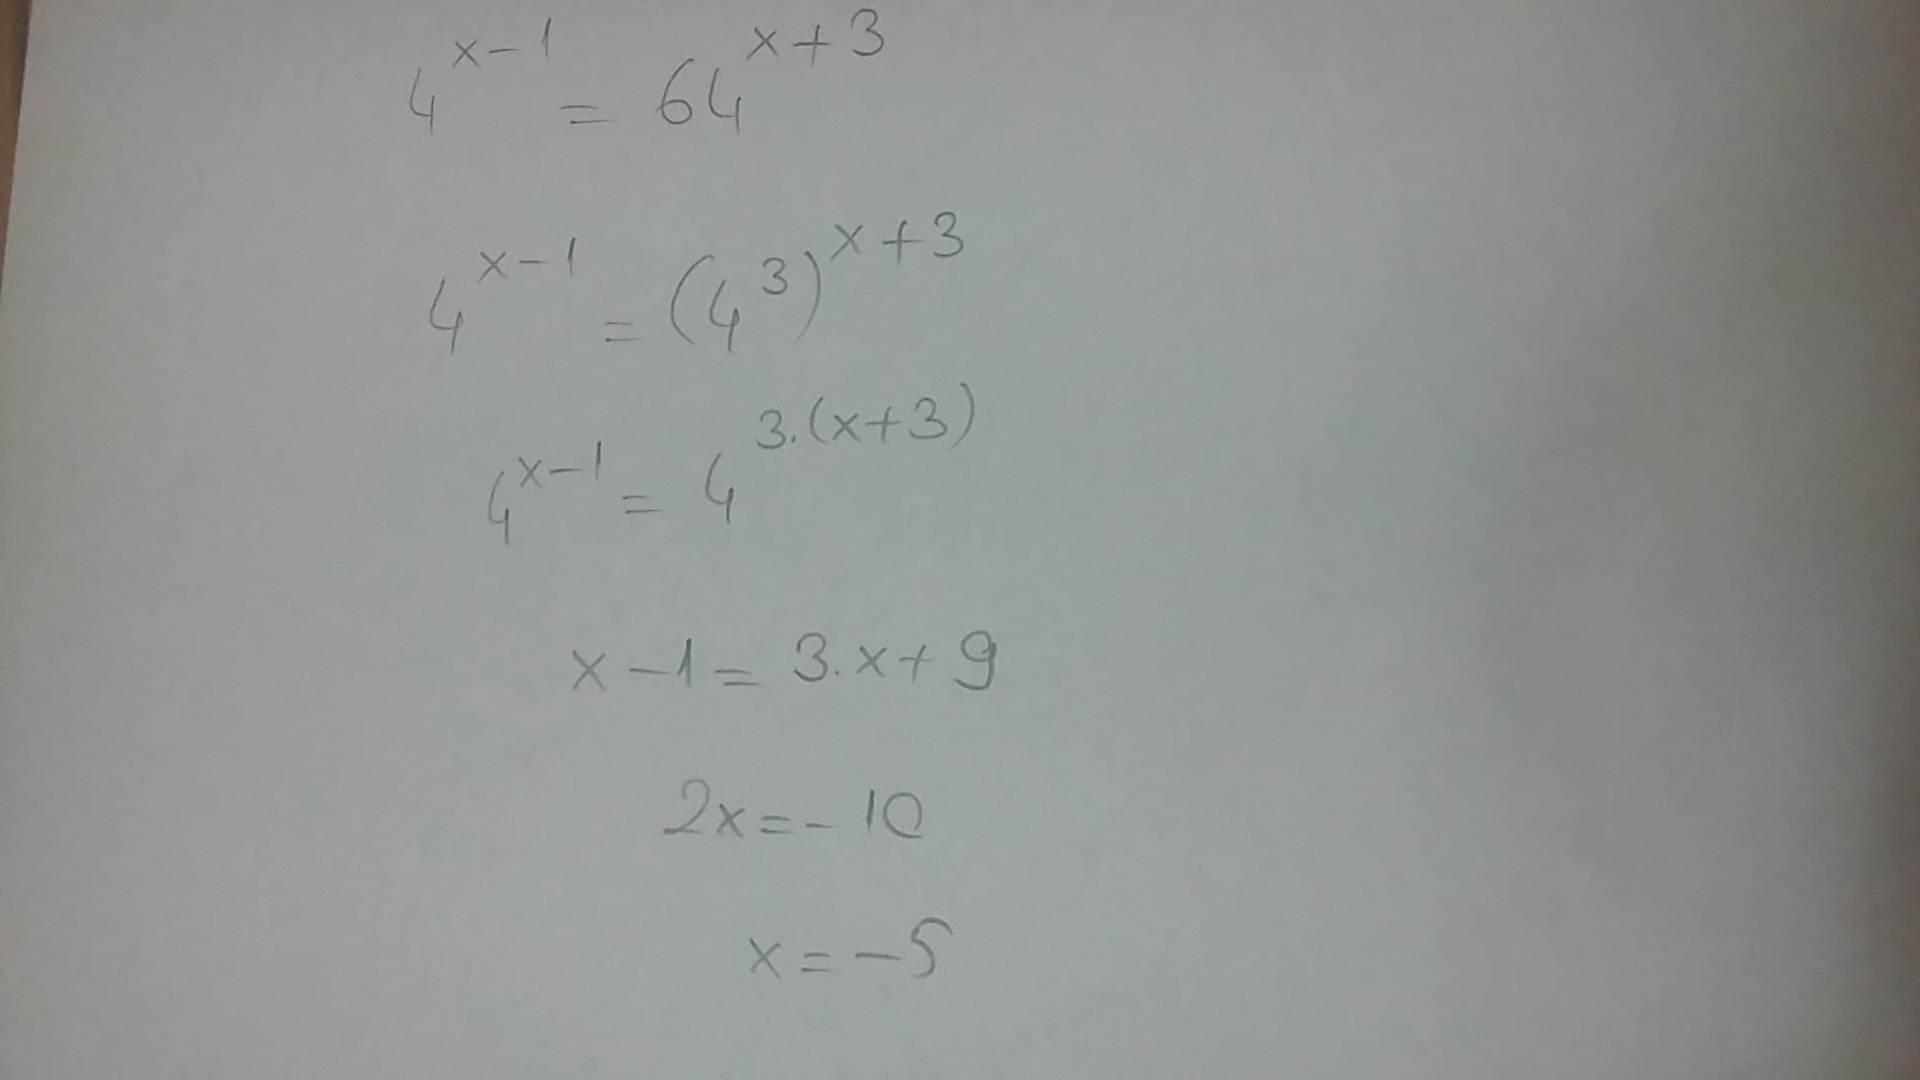 4^{x-1} = 64^{x+3}
4^{x-1} = (4^3)^{x+3}
4^{x-1} = 4^{3.(x+3)}
x-1 = 3.x+9
2x=-10
x=-5